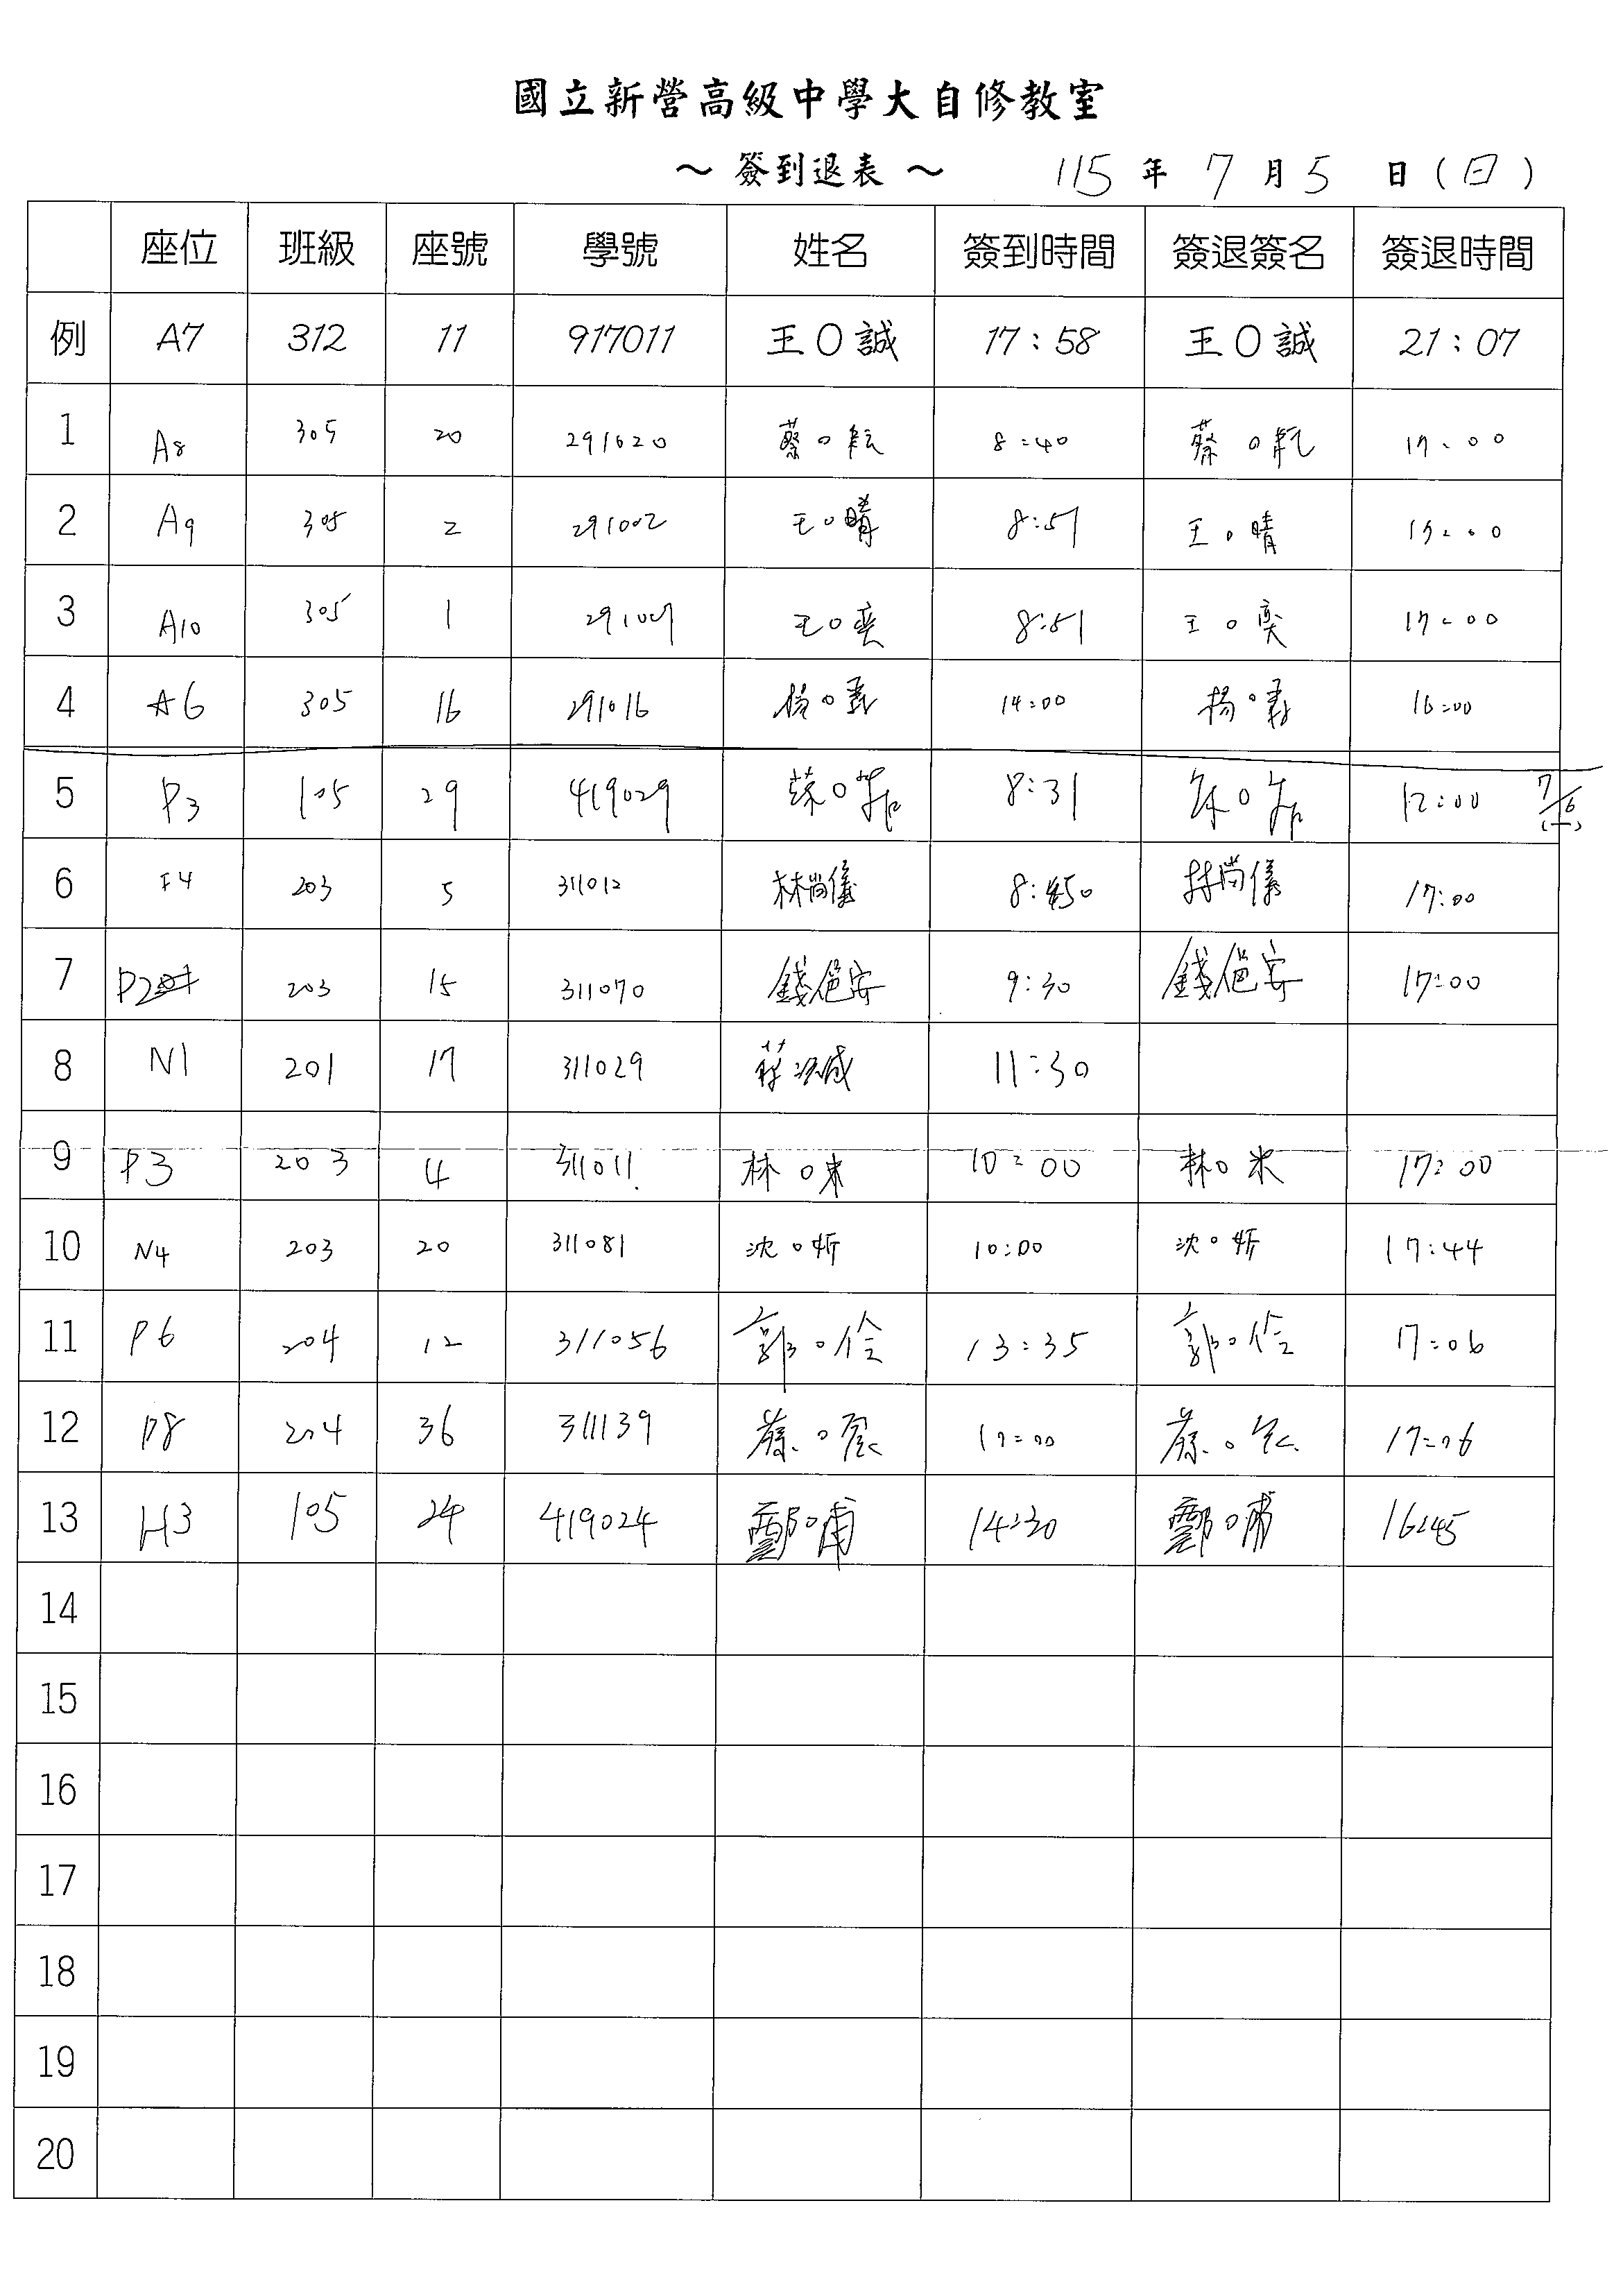 國立新營高級中學大自修教室
～ 簽到退表 ～ 115 年 7 月 5 日 ( 日 )
座位 班級 座號 學號 姓名 簽到時間 簽退簽名 簽退時間
例 A7 312 11 917011 王〇誠 17：58 王〇誠 21：07
1 A8 305 20 291020 蔡〇 8:40 蔡〇 17:00
2 A9 305 2 291002 王〇晴 8:51 王〇晴 17:00
3 A10 305 1 291001 王〇奕 8:51 王〇奕 17:00
4 A6 305 16 291016 楊〇 14:00 楊〇 16:00
5 P3 105 29 419029 〇 8:31 〇 12:00 7/6 (一)
6 F4 203 5 311012 林尚儀 8:50 林尚儀 17:00
7 P2 203 15 311070 錢安 9:30 錢安 17:00
8 N1 201 17 311029 11:30
9 P3 203 4 311011 林〇 10:00 林〇 17:00
10 N4 203 20 311081 沈〇 10:00 沈〇 17:44
11 P6 204 12 311056 郭〇 13:35 郭〇 17:06
12 P8 204 36 311139 〇 17:00 〇 17:06
13 H3 105 24 419024 鄭〇甫 14:30 鄭〇甫 16:45
14
15
16
17
18
19
20